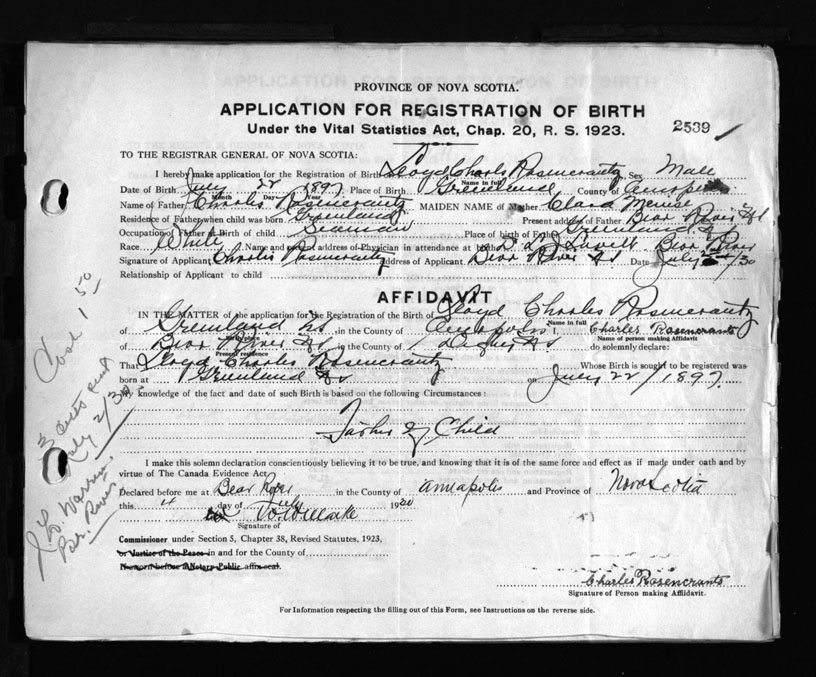 PROVINCE OF NOVA SCOTIA.
APPLICATION FOR REGISTRATION OF BIRTH
Under the Vital Statistics Act, Chap. 20, R. S. 1923.
2539
TO THE REGISTRAR GENERAL OF NOVA SCOTIA:
I hereby make application for the Registration of Birth Lloyd Charles Rosencrantz Sex Male
Name in full
Date of Birth July 22 1897 Place of Birth Greenland County of
Month Day Year
Name of Father Charles Rosencrantz MAIDEN NAME of Mother Clara
Residence of Father when child was born Greenland Present address of Father Bear River NS
Occupation of Father at Birth of child Seaman Place of birth of Father Greenland
Race White Name and present address of Physician in attendance at birth Bear River
Signature of Applicant Charles Rosencrantz Address of Applicant Bear River NS Date July /30
Relationship of Applicant to child
AFFIDAVIT
IN THE MATTER of the application for the Registration of the Birth of Lloyd Charles Rosencrantz
Name in full
of Greenland NS in the County of Annapolis I, Charles Rosencrants
Birth place
Name of person making Affidavit
of Bear River NS in the County of Digby NS do solemnly declare:
Present residence
That Lloyd Charles Rosencrantz Whose Birth is sought to be registered was
born at Greenland NS on July 22/1897.
My knowledge of the fact and date of such Birth is based on the following Circumstances:
Father of Child
I make this solemn declaration conscientiously believing it to be true, and knowing that it is of the same force and effect as if made under oath and by
virtue of The Canada Evidence Act.
Declared before me at Bear River in the County of Annapolis and Province of Nova Scotia
this 4 day of July 1930
Signature of
Commissioner under Section 5, Chapter 38, Revised Statutes, 1923,
or Justice of the Peace in and for the County of
Charles Rosencrants
Signature of Person making Affidavit.
For Information respecting the filling out of this Form, see Instructions on the reverse side.
Cost 1 50